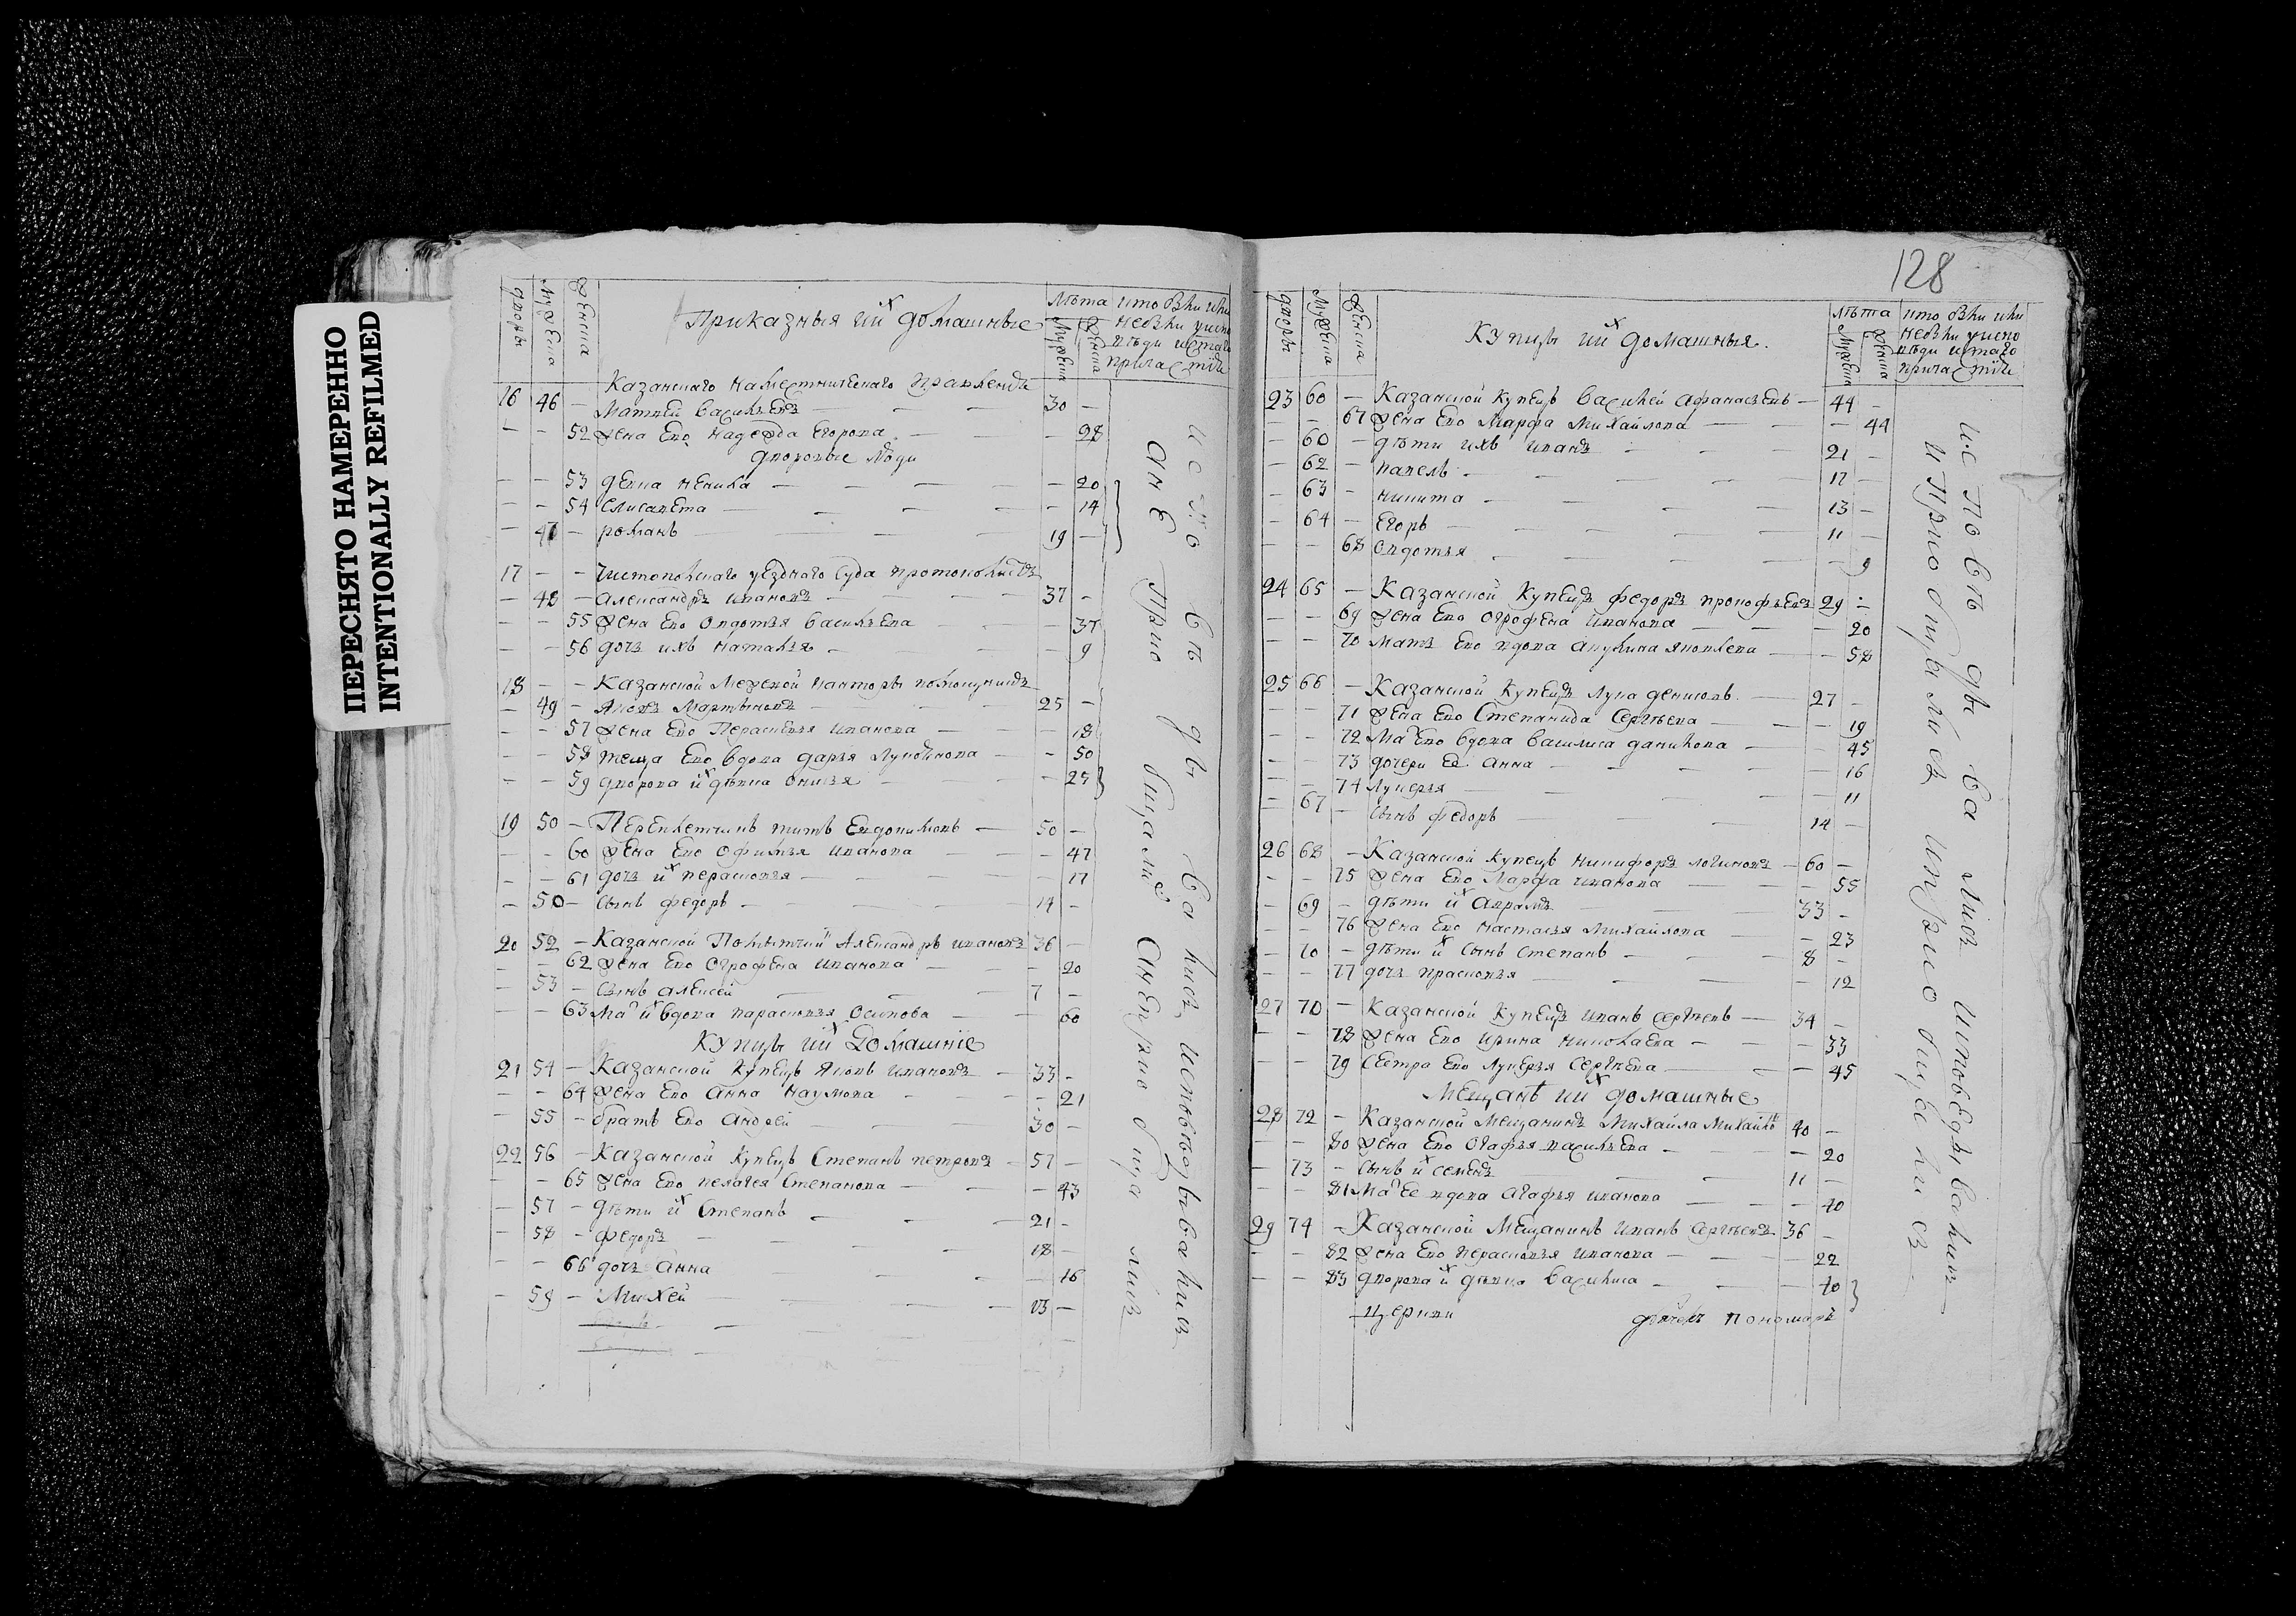 ПЕРЕСНЯТО НАМЕРЕННО
INTENTIONALLY REFILMED
дворы мужеска женска Приказныя и их домашные лѣта мужеска женска кто были ли
не были у испо
вѣди и стаго
причастїя
Казанскаго наместническаго правленїя
16 46 – Матвей Васильевъ – 30 –
– – 52 жена Ево Надежда Егорова – – 28
дворовые люди
– – 53 девка – – 20
– – 54 Елисавета – – 14
– 47 – романъ – 19 –
17 – – Чистопольскаго уезднаго суда протоколистъ
– 48 – Александръ Ивановъ – 37 –
– – 55 жена Ево Овдотья Васильева – – 37
– – 56 дочь ихъ Наталья – – 9
18 – – Казанской Межевой Канторы помощникъ
– 49 – Яковъ Мартыновъ – 25 –
– – 57 жена Ево Парасковья Иванова – – 18
– – 58 теща Ево вдова дарья – – 50
– – 59 дворова их дѣвка – – 25
19 50 – титъ Евдокимовъ – 50 –
– – 60 жена Ево Офимья Иванова – – 47
– – 61 дочь их парасковья – – 17
– 50 – сынъ федоръ – 14 –
20 52 – Казанской Повытчик Александръ Ивановъ 36 –
– – 62 жена Ево Огрофена Иванова – – 20
– 53 – сынъ алексей – 7 –
– – 63 Ма их вдова парасковья Осипова – – 60
Купцы и их Домашнїе
21 54 – Казанской Купецъ Яковъ Ивановъ – 33 –
– – 64 жена Ево Анна Наумова – – 21
– 55 – братъ Ево Андрей 30 –
22 56 – Казанской Купецъ Степанъ петровъ – 57 –
– – 65 жена Ево пелагея Степанова – – 43
– 57 – дѣти их Степанъ – 21 –
– 58 – федоръ – 18 –
– – 66 дочь Анна – – 16
– 59 – Михей – 13 –
128
дворы мужеска женска Купцы и их домашныя. лѣта мужеска женска кто были ли
не были у испо
вѣди и стаго
причастїя
23 60 – Казанской Купецъ Василей Афанасьевъ – 44 –
– – 67 жена Ево Марфа Михайлова – – 44
– 60 – дѣти ихъ Иванъ – 21 –
– 62 – павелъ – 17 –
– 63 – никита – 13 –
– 64 – Егоръ – 11 –
– – 68 Овдотья – – 9
24 65 – Казанской Купецъ федоръ прокофьевъ 29 –
– – 69 жена Ево Огрофена Иванова – – 20
– – 70 мать Ево вдова Акулина Яковлева – – 58
25 66 – Казанской Купецъ Лука денисовъ – 27 –
– – 71 жена Ево Степанида Сергѣева – – 19
– – 72 Ма Ево вдова Василиса данилова – – 45
– – 73 дочери Ее Анна – – 16
– – 74 Лукерья – – 11
– 67 – сынъ федоръ – 14 –
26 68 – Казанской Купецъ Никифоръ логиновъ – 60 –
– – 75 жена Ево Марфа Иванова – – 55
– 69 – дѣти их Аврамъ – 33 –
– – 76 жена Ево Настасья Михайлова – – 23
– 70 – дѣти их сынъ Степанъ – 8 –
– – 77 дочь прасковья – – 12
27 70 – Казанской Купецъ Иванъ Сергѣевъ – 34 –
– – 78 жена Ево Ирина Николаева – – 33
– – 79 Сестра Ево Лукерья Сергѣева – – 45
Мещанѣ и их домашные
28 72 – Казанской Мещанинъ Михайла Михайло 40 –
– – 80 жена Ево Огафья васильева – – 20
– 73 – сынъ их семенъ – 11 –
– – 81 Ма Ее вдова Агафья Иванова – – 40
29 74 – Казанской Мещанинъ Иванъ Сергѣевъ 36 –
– – 82 жена Ево парасковья Иванова – – 22
– – 83 дворова их дѣвка Василиса – – 40
Церкви пономарь